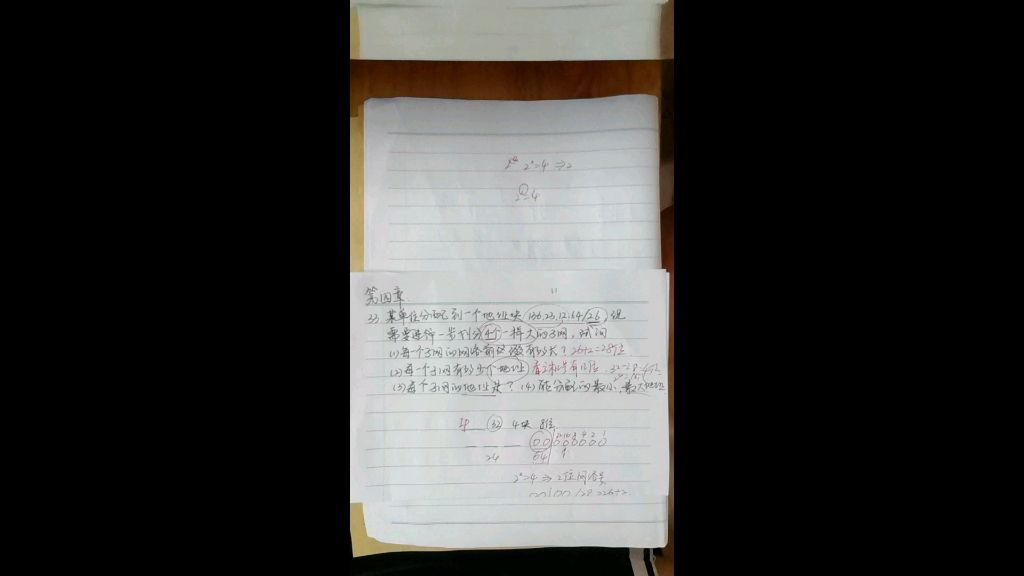 2²=4 ⇒2
2=4
第四章
33 某单位分配到一个地址块 136.23.12.64/26,现
需要进一步划分4个一样大的子网,试问
(1)每个子网的网络前缀有多长? 26+2=28位
(2)每一个子网有多少个地址 看主机号有几位 32-28=4位
(3)每个子网的地址块? (4)可分配的最小,最大地址
IP 32 4块 8位
32 16 8 4 2 1
00 000000
24 64
2²=4 ⇒ 2位网络号
/28 =26+2